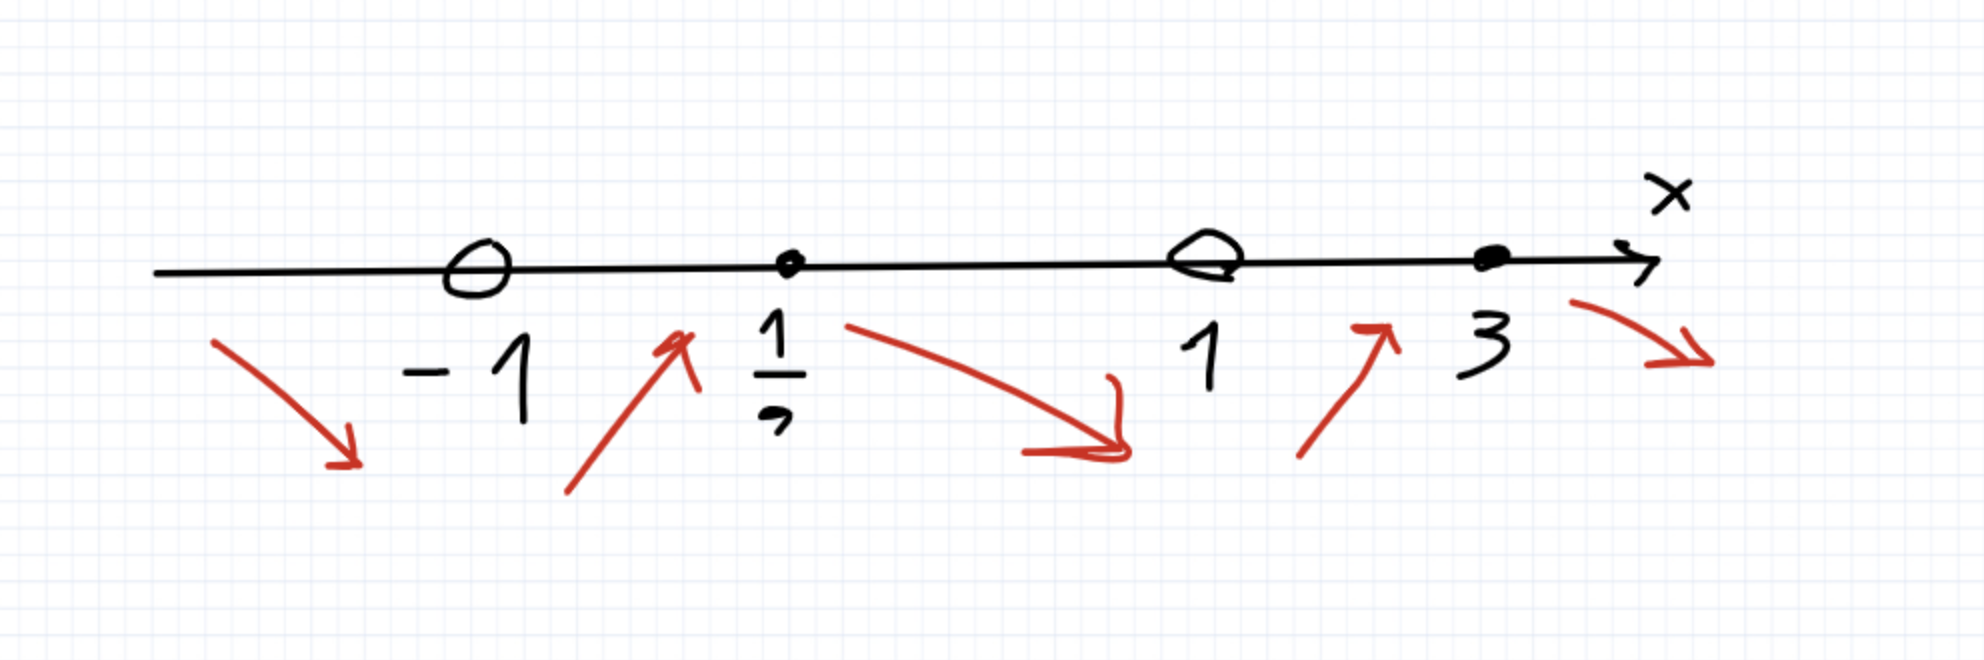 x
-1 1 1 3